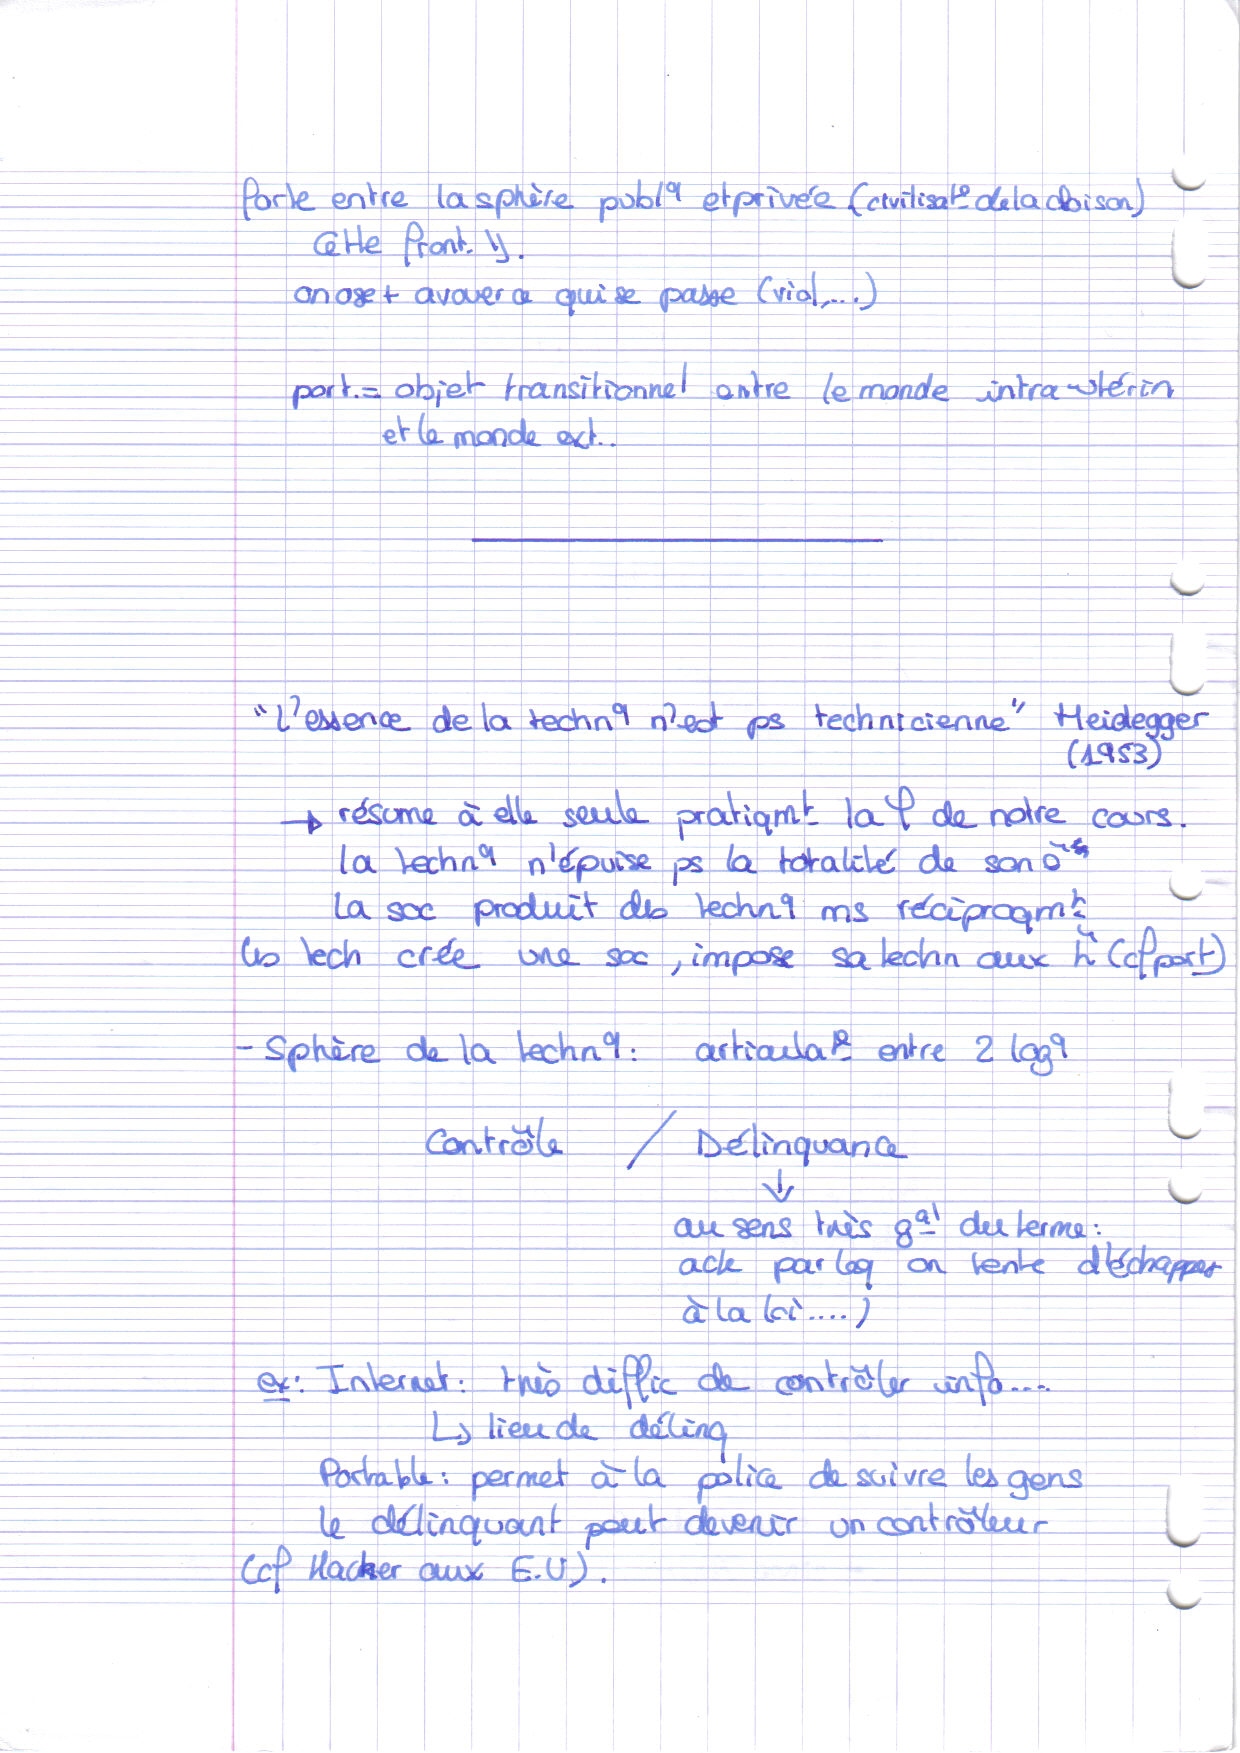 Porte entre la sphère publq et privée (civilisato de la cloison)
Cette front. ↘.
on ose + avouer ce qui se passe (viol,...)
port. = objet transitionnel entre le monde intra-utérin
et le monde ext..
"L'essence de la technq n'est ps technicienne" Heidegger
(1953)
→ résume à elle seule pratiqmt la φ de notre cours.
la technq n'épuise ps la totalité de son
La soc produit des technq ms réciproqmt
les tech crée une soc, impose sa techn aux h (cf port)
- Sphère de la technq: articulato entre 2 logq
Contrôle / Délinquance
↓
au sens très gal du terme:
acte par leq on tente d'échapper
à la loi....)
ex: Internet: très diffic de contrôler info....
↳ lieu de délinq
Portable: permet à la police de suivre les gens
le délinquant peut devenir un contrôleur
(cf Hacker aux E.U).